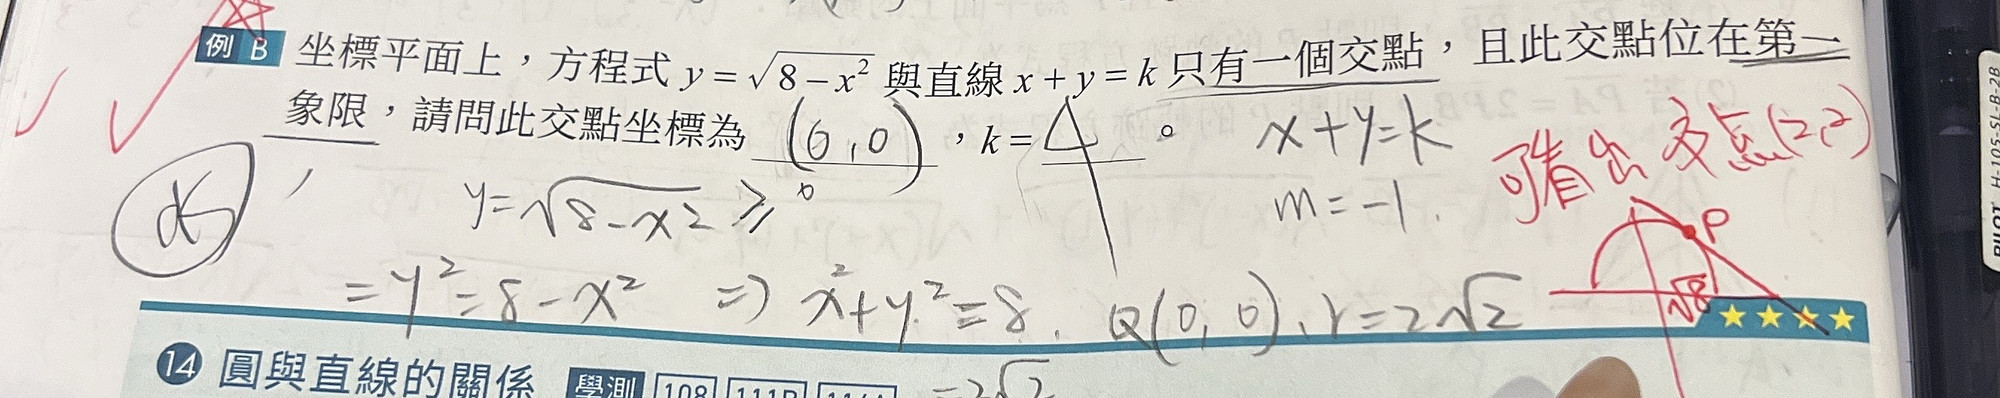 例 B 坐標平面上，方程式 y = √(8 − x²) 與直線 x + y = k 只有一個交點，且此交點位在第一
象限，請問此交點坐標為 (0,0)，k = 4。
x+y=k
可看出 交点(2,2)
y=√(8-x²) ≥ 0
m=-1.
P
=y²=8-x² ⇒ x²+y²=8. Q(0,0), r=2√2
√8
★★★★
14 圓與直線的關係 學測 108 111B
=2√2
PILOT H-105-SL-B-2B